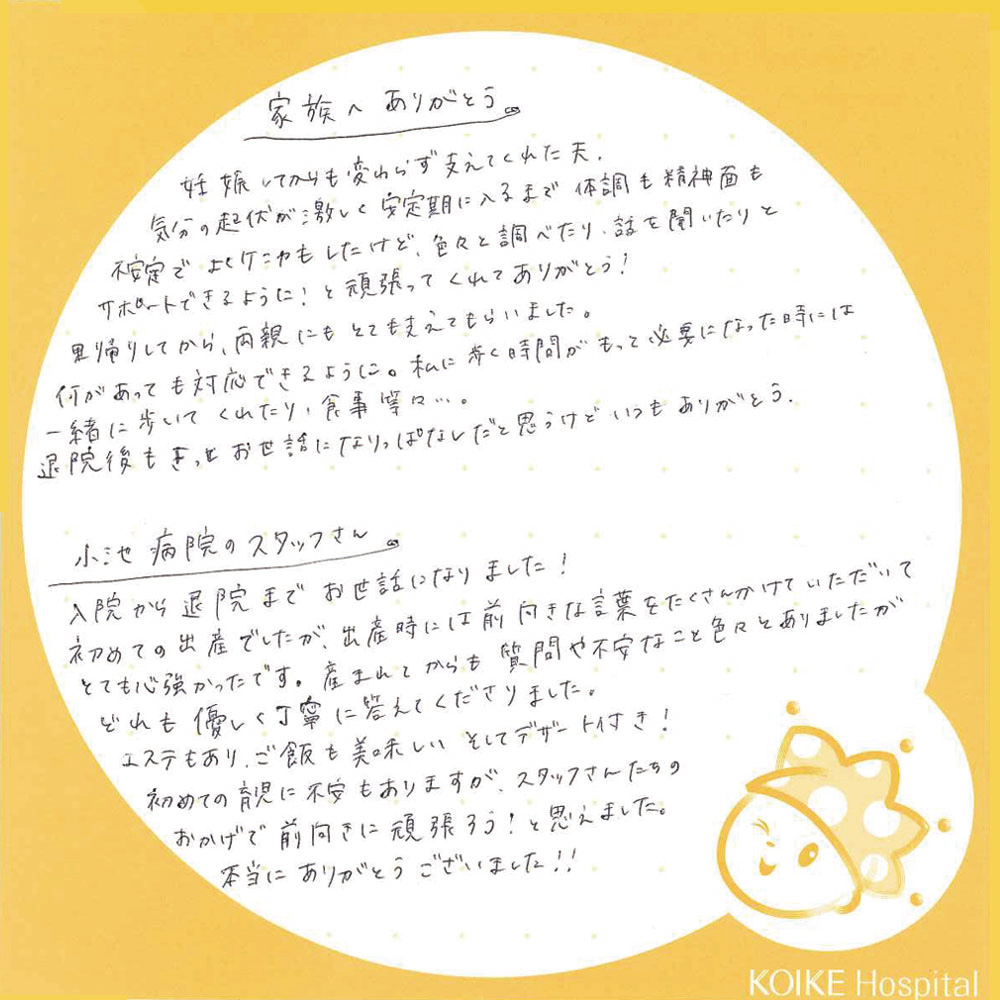 家族へ ありがとう
妊娠してからも変わらず支えてくれた夫.
気分の起伏が激しく安定期に入るまで 体調も精神面も
不安定で よくケンカもしたけど、色々と調べたり、話を聞いたりと
サポートできるように！と頑張ってくれてありがとう！
里帰りしてから、両親にもとても支えてもらいました。
何があっても対応できるように。私に歩く時間がもって必要になった時には
一緒に歩いてくれたり、食事等々…。
退院後もきっとお世話になりっぱなしだと思うけどいつもありがとう.
小池病院のスタッフさん
入院から退院までお世話になりました！
初めての出産でしたが、出産時には前向きな言葉をたくさんかけていただいて
とても心強かったです。産まれてからも質問や不安なこと色々とありましたが
どれも優しく丁寧に答えてくださりました。
エステもあり、ご飯も美味しい そしてデザート付き！
初めての育児に不安もありますが、スタッフさんたちの
おかげで前向きに頑張ろう！と思えました。
本当にありがとうございました！！
KOIKE Hospital